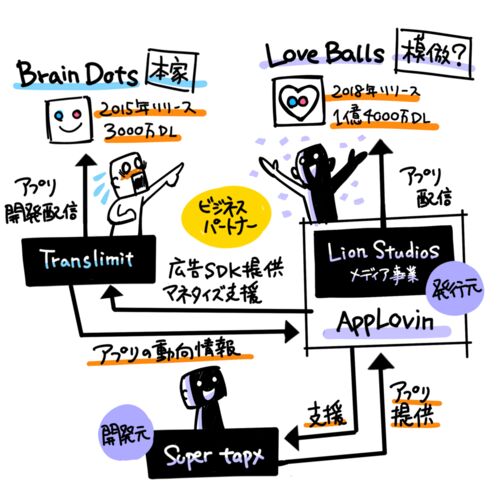 Brain Dots
本家
2015年リリース
3000万DL
Love Balls
模倣?
2018年リリース
1億4000万DL
アプリ
開発配信
ビジネス
パートナー
アプリ
配信
Translimit
広告SDK提供
マネタイズ支援
Lion Studios
メディア事業
発行元
AppLovin
アプリの動向情報
開発元
支援
アプリ
提供
Super tapx